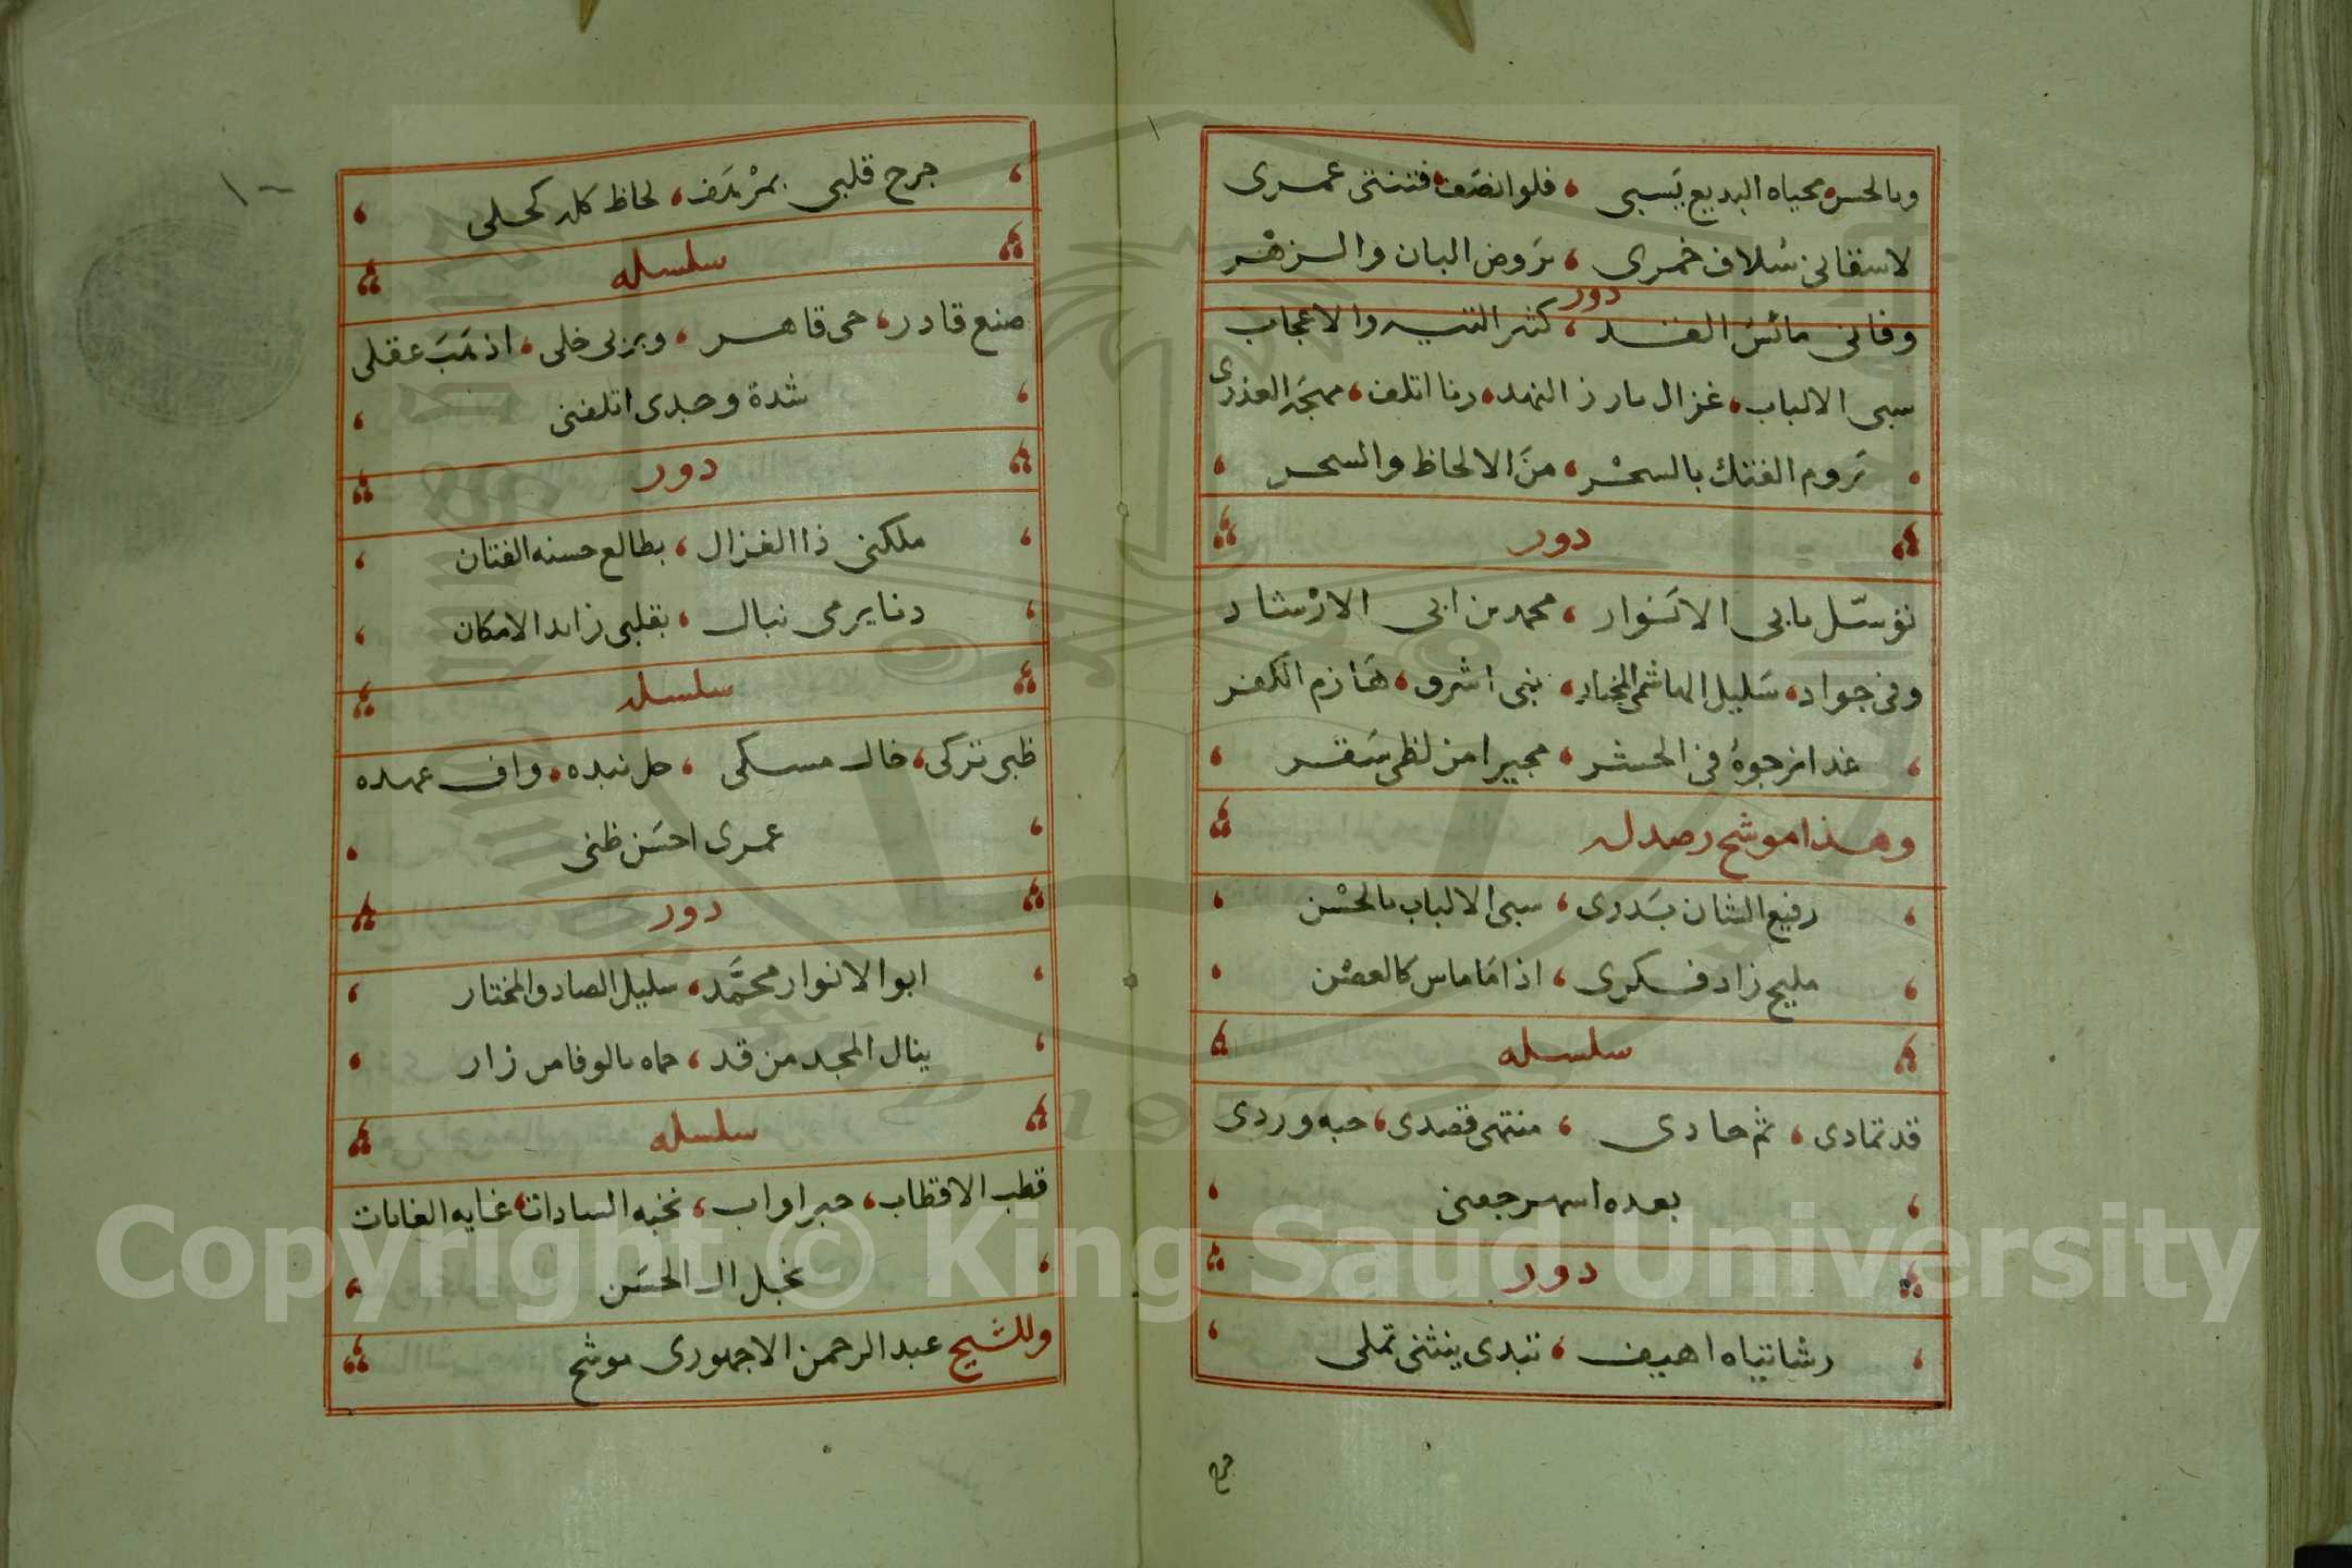 وبالحسن محياه البديع يَسبى ، فلوانصَف فتنتى عمرى
لاسقانى سُلاف خمرى ، بَروض البان والزهْر
دور
وفانى مائسُ القد ، كثير التيه والاعجاب
سبى الالباب ، غزال بارز النهد ، رنا اتلف ، مهجَة العذرى
تَروم الفتك بالسحْر ، منَ الالحاظ والسحر
دور
توسّل بابى الانوار ، محمد من ابى الارْشاد
وفى جواد ، سَليل الهاشمى المختار ، بنى اشرو ، هَازم الكفر
غدا نرجوهُ فى الحشر ، مجيرا من لظى سَقر
وهذا موشح رصد له
رفيع الشان بَدرى ، سبى الالباب بالحسْن
مليح زاد فكرى ، اذا مَا ماس كالغصْن
سلسله
قد تمادى ، ثم حادى ، منتهى قصدى ، حبه وردى
بعده اسهر جفنى
دور
رشا تياه اهيف ، تبدى ينثنى تملى
جرح
١٠
جرح قلبى بمرْهَف ، لحاظ كله كحلى
سلسله
صنع قادر ، حى قاهر ، وبزلى خلى ، اذهَبَ عقلى
شدة وجدى اتلفنى
دور
ملكنى ذا الغزال ، بطالع حسنه الفتان
رنا يرمى نبال ، بقلبى زايد الامكان
سلسله
ظبى تركى ، خال مسكى ، حل نبده ، واف عهده
عمرى احسَن ظنى
دور
ابو الانوار محمَّد ، سليل الصادق المختار
ينال المجد من قد ، حماه بالوفا من زار
سلسله
قطب الاقطاب ، حبر اواب ، نخبه السادات ، غايه الغايات
نجل ال الحسَن
وللشيخ عبد الرحمن الاجهورى موشح
Copyright © King Saud University
1957